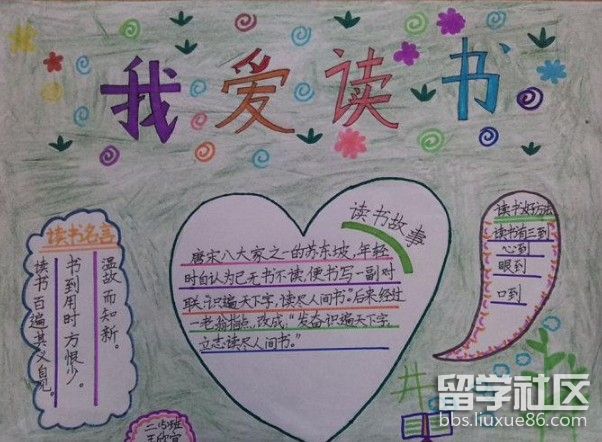 我爱读书
读书名言
温故而知新。
书到用时方恨少。
读书百遍其义自见。
读书故事
唐宋八大家之一的苏东坡,年轻
时自认为已无书不读,便书写一副对
联:识遍天下字,读尽人间书。"后来经过
一老翁指点,改成"发奋识遍天下字,
立志读尽人间书。"
读书好方法
读书有三到
心到
眼到
口到
留学社区
bbs.liuxue86.com